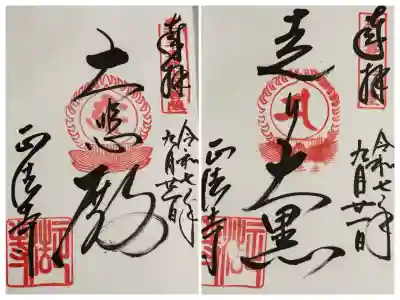 奉拝
大悲殿
令和七年
九月廿一日
正法寺
奉拝
走り大黒
令和七年
九月廿一日
正法寺